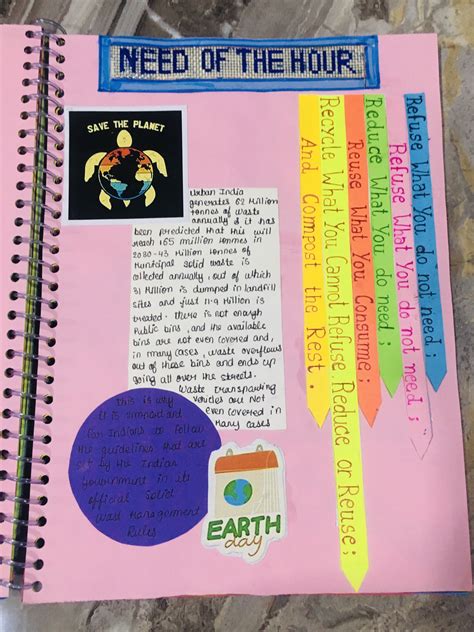 NEED OF THE HOUR
SAVE THE PLANET
Urban India
generates 62 Million
tonnes of waste
annually & it has
been predicted that this will
reach 165 million tonnes in
2030-43 Million tonnes of
Municipal solid waste is
collected annually, out of which
31 Million is dumped in landfill
sites and just 11.9 Million is
treated. There is not enough
Public bins, and the available
bins are not even covered and,
in many cases, waste overflows
out of these bins and ends up
going all over the streets.
Waste transporting
vehicles are Not
even covered in
many cases
This is why
it is important
for Indians to follow
the guidelines that are
set by the Indian
Government in its
official Solid
Wast Management
Rules
EARTH
day
Refuse What You do not need;
Refuse What You do not need;
Reduce What You do need;
Reuse What You Consume;
Recycle What You Cannot Refuse, Reduce or Reuse;
And Compost the Rest.